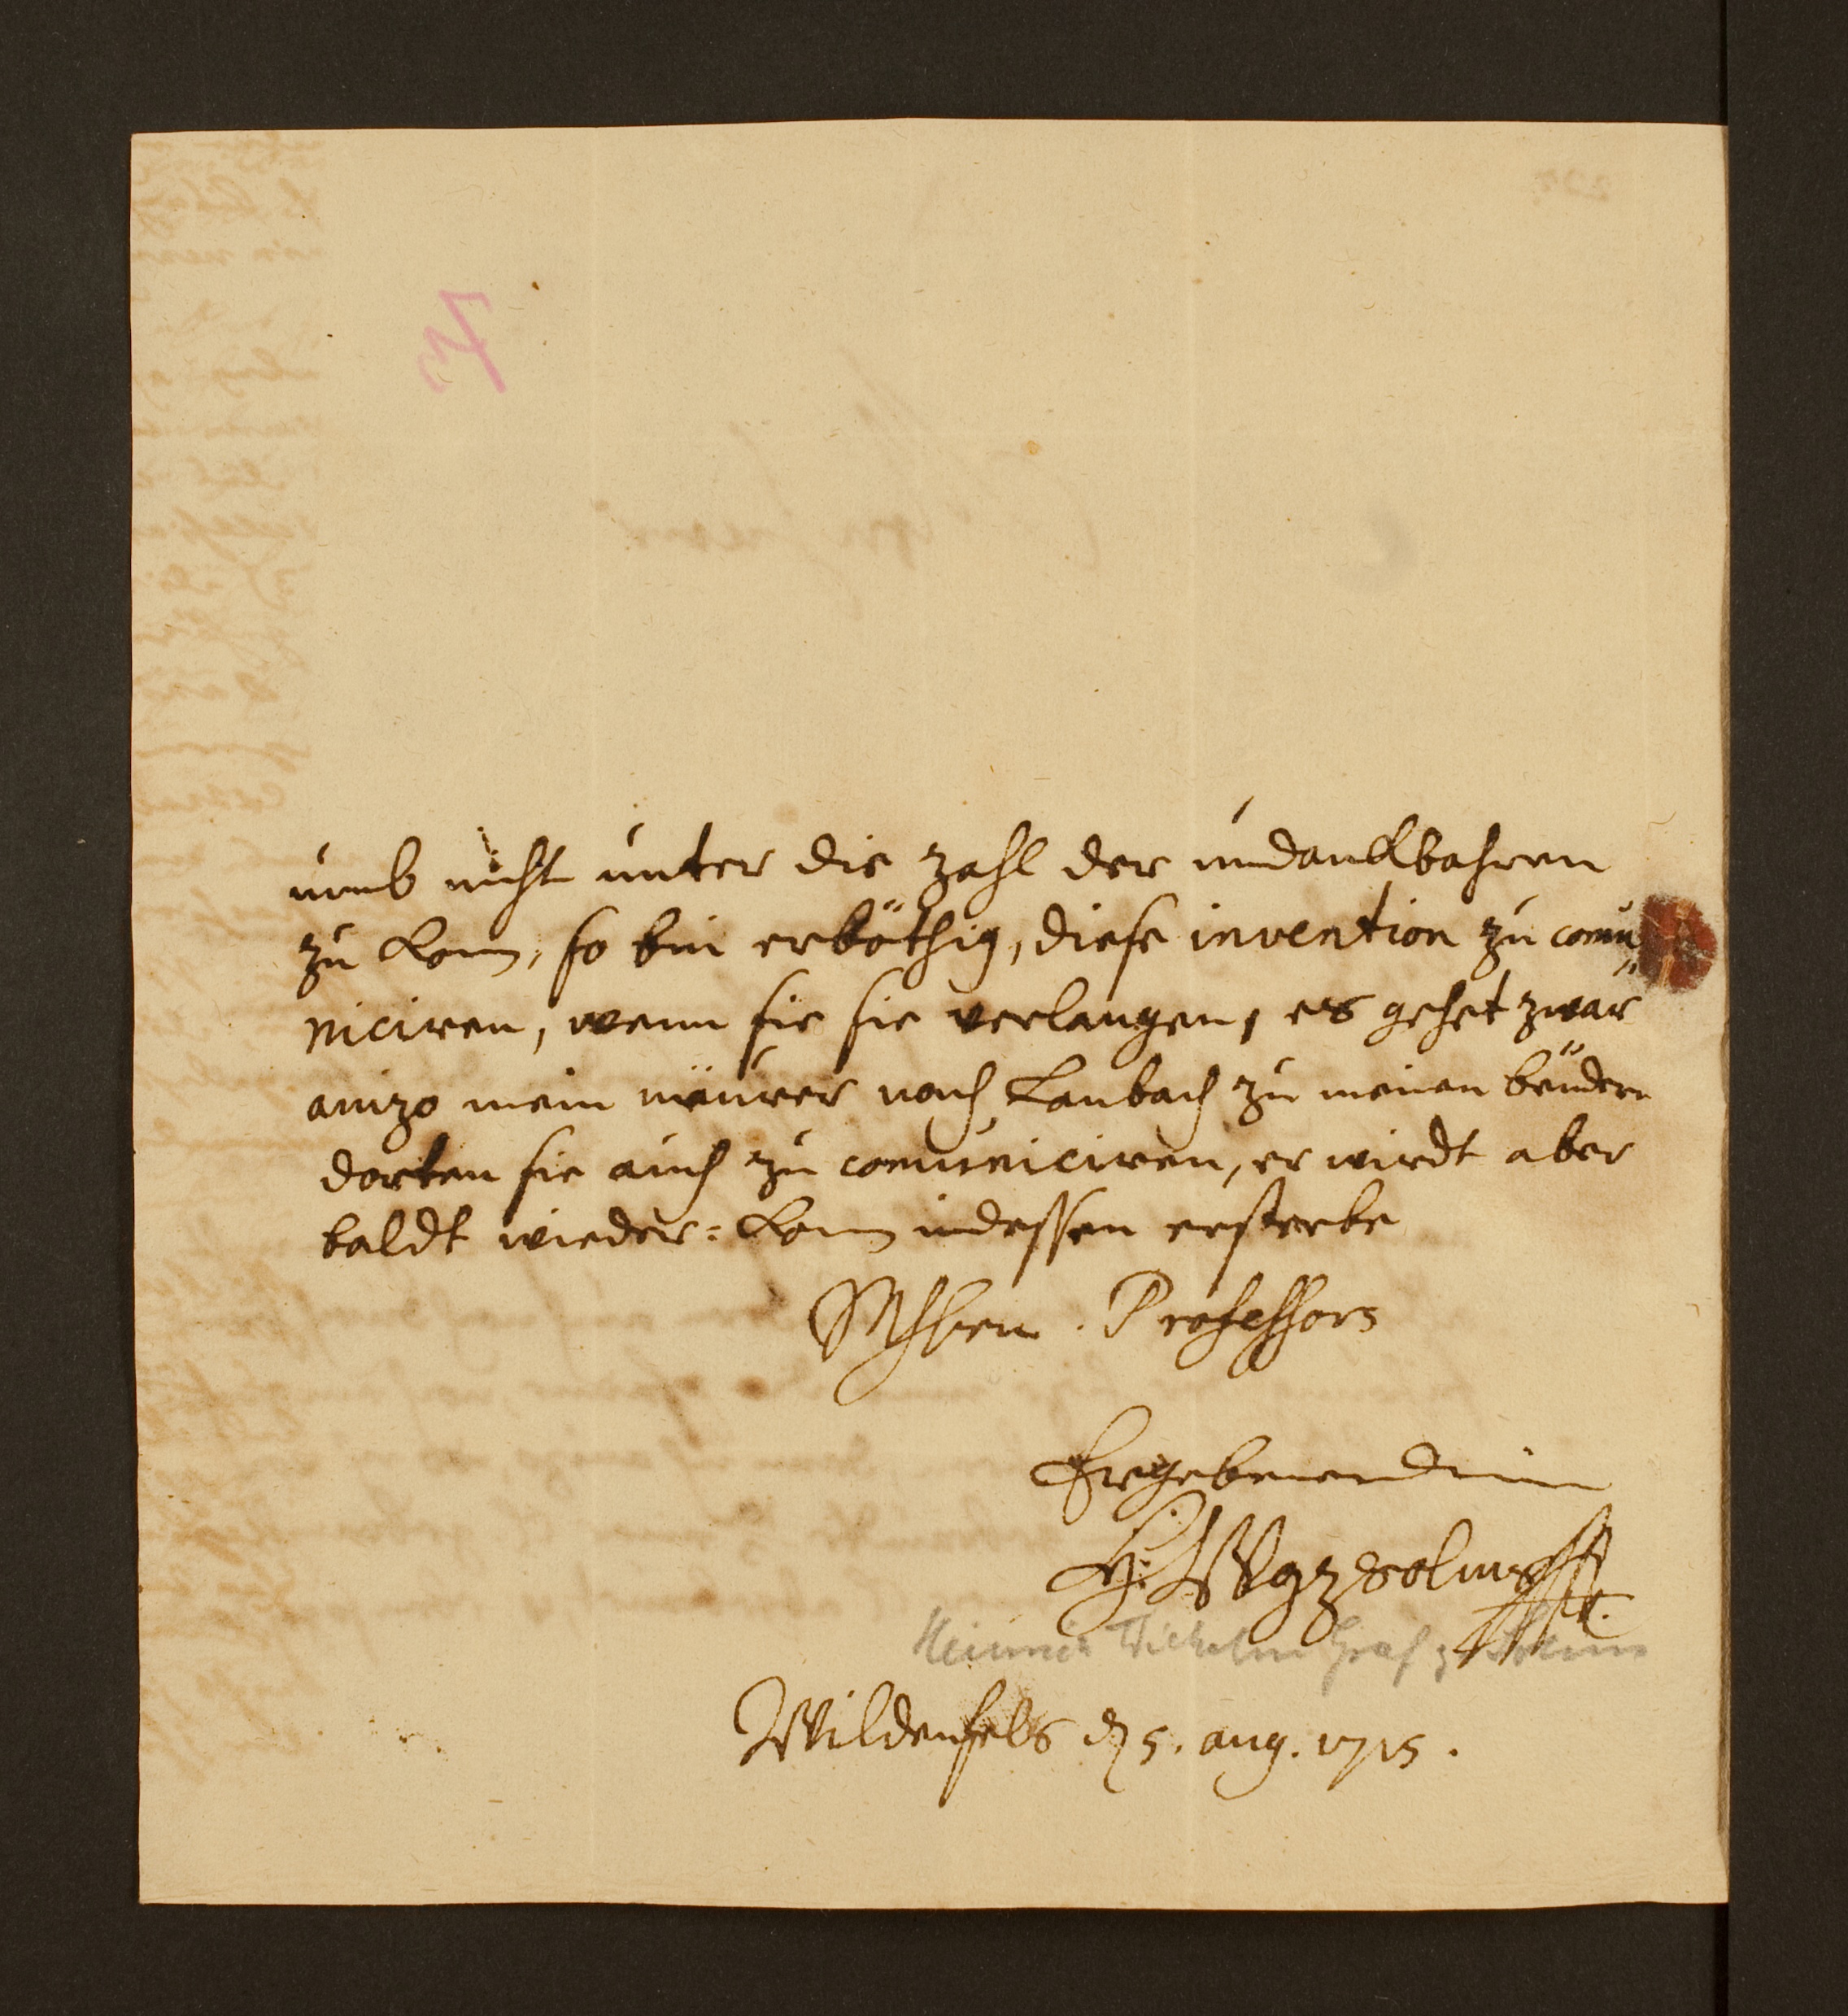 umb nicht unter die zahl der undankbahren
zu kom, so bin erböthig, diese invention zu comu
niciren, wenn sie sie verlangen, es gehet zwar
anizo mein mäurer nach Laubach zu meinen brüdern
dorten sie auch zu comuniciren, er wirdt aber
baldt wieder=kom indessen ersterbe
Mhhen. Professors
Ergebener diener
H. W G z Solms
Heinrich Wilhelm Graf z Solms
Wildenfels d 5. aug. 1715.